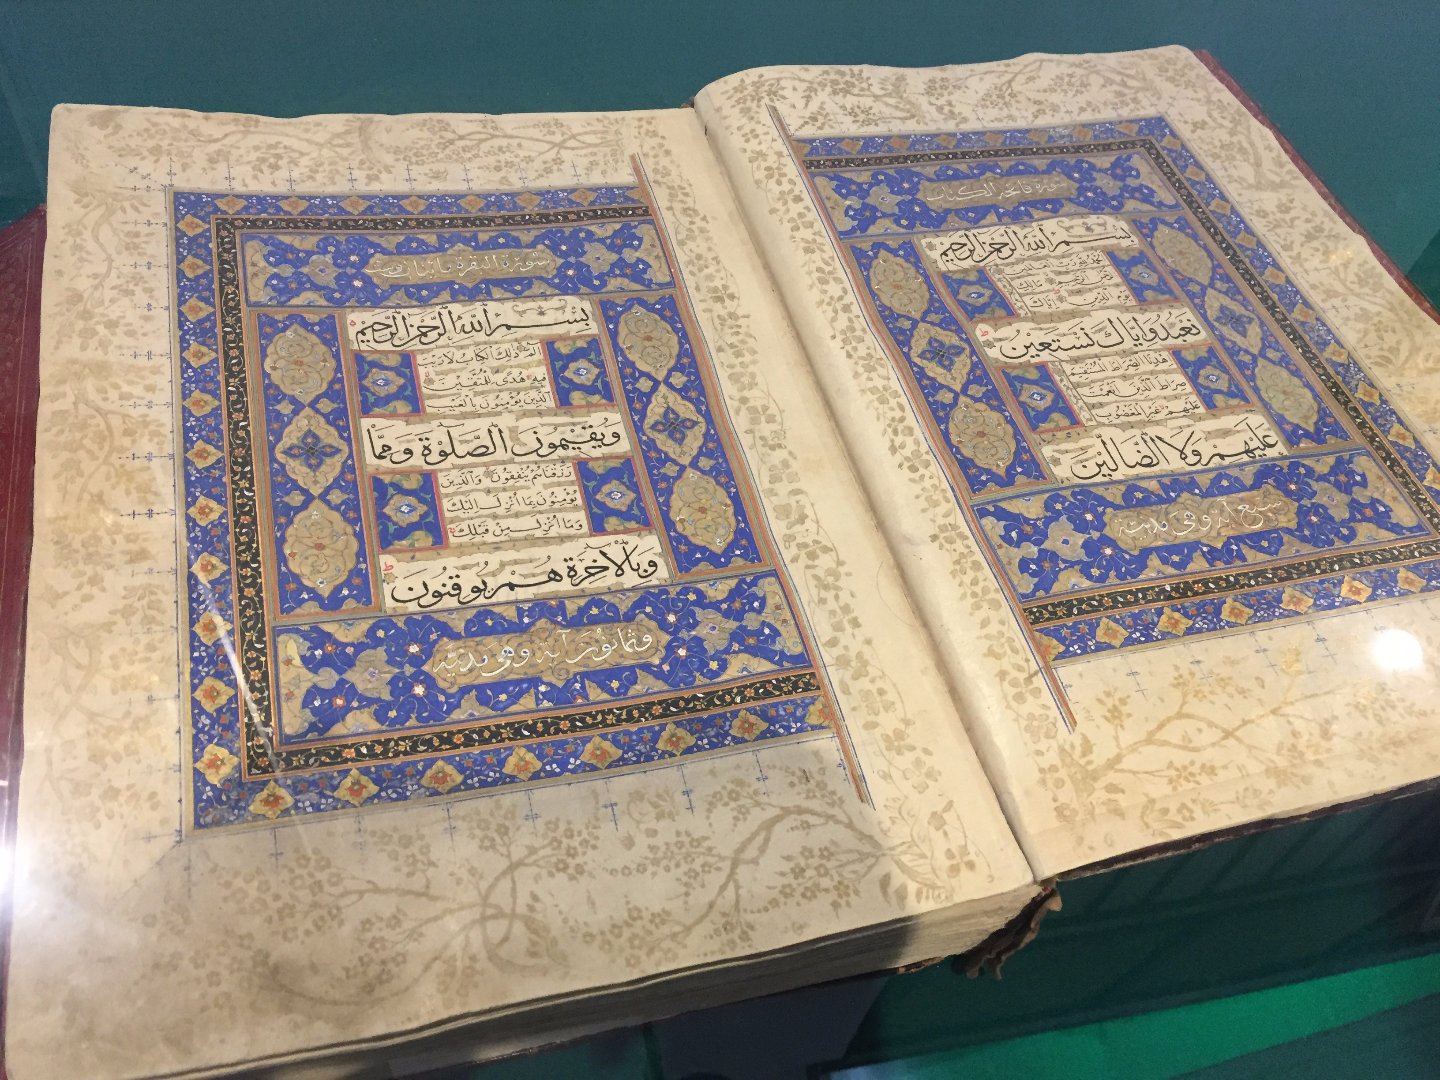 سورة فاتحة الكتاب
بسم الله الرحمن الرحيم
الحمد لله رب العالمين
الرحمن الرحيم مالك
يوم الدين إياك
نعبد وإياك نستعين
اهدنا الصراط المستقيم
صراط الذين أنعمت
عليهم غير المغضوب
عليهم ولا الضالين
سبع آية وهي مدنية
سورة البقرة مايتان وست
بسم الله الرحمن الرحيم
الم ذلك الكتاب لا ريب
فيه هدى للمتقين
الذين يؤمنون بالغيب
ويقيمون الصلوة ومما
رزقناهم ينفقون والذين
يؤمنون بما أنزل إليك
وما أنزل من قبلك
وبالآخرة هم يوقنون
وثمانون آية وهي مدنية